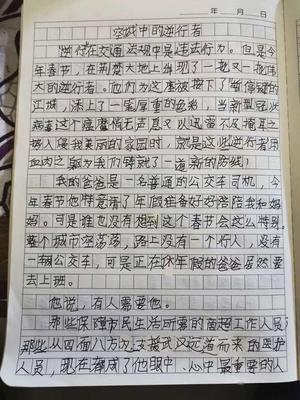 年 月 日
空城中的逆行者
逆行在交通法规中是违法行为。但是今
年春节，在荆楚大地上出现了一批又一批伟
大的逆行者。他们为这座被按下了暂停键的
江城，添上了一笔厚重的色彩，当新型冠状
病毒这个恶魔悄无声息又以迅雷不及掩耳之
势入侵我美丽的家园时，就是这些逆行者用
血肉之躯为我们铸就了一道新的防线！
我的爸爸是一名普通的公交车司机，今
年春节他特意请了年假准备好好陪陪我和妈
妈。可是谁也没有想到这个春节会这么特别。
整个城市空荡荡，路上没有一个行人，没有
一辆公交车，可是正在休年假的爸爸居然要
去上班。
他说，有人需要他。
那些保障市民生活所需的商超工作人员，
那些从四面八方支援武汉远道而来的医护
人员，现在都成了他眼中、心中最重要的人